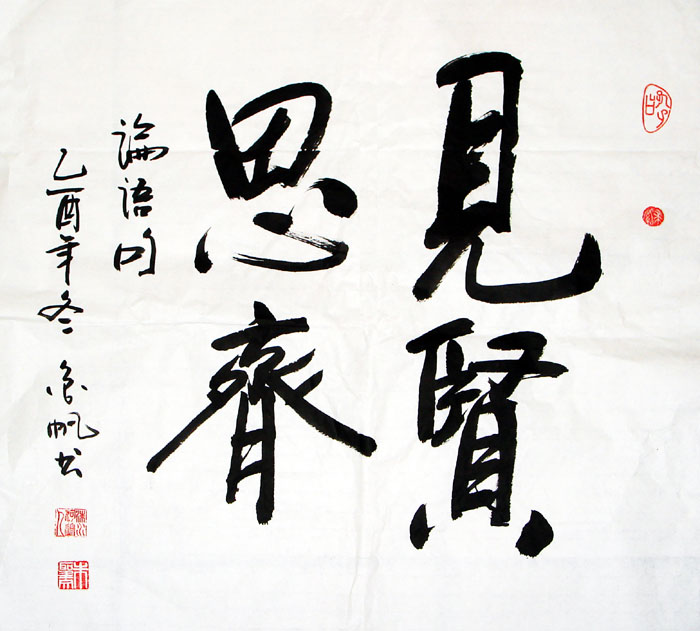 見賢
思齊
論語句
乙酉年冬
帆书